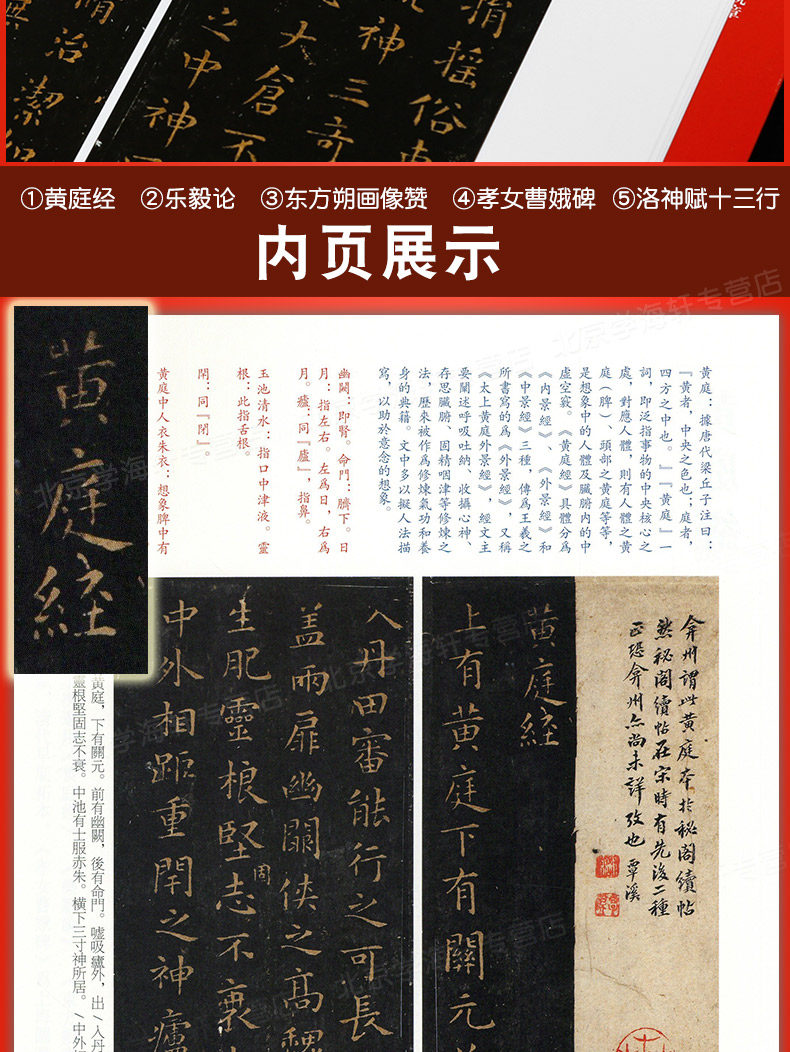 指摇俗
神三奇
大倉不
之中神
治潔
①黄庭经 ②乐毅论 ③东方朔画像赞 ④孝女曹娥碑 ⑤洛神赋十三行
内页展示
北京学海轩专营店
黄庭經
黄庭：據唐代梁丘子注曰：
『黄者，中央之色也；庭者，
四方之中也。』『黄庭』一
詞，即泛指事物的中央核心之
處，對應人體，則有人體之黄
庭（脾）、頭部之黄庭等等，
是想象中的人體及臟腑内的中
虚空竅。《黄庭經》具體分爲
《内景經》、《外景經》和
《中景經》三種，傳爲王羲之
所書寫的爲《外景經》，又稱
《太上黄庭外景經》，經文主
要闡述呼吸吐納、收攝心神、
存思臟腑、固精咽津等修煉之
法，歷來被作爲修煉氣功和養
身的典籍。文中多以擬人法描
寫，以助於意念的想象。
幽闕：即腎。命門：臍下。日
月：指左右。左爲日，右爲
月。廬：同『廬』，指鼻。
玉池清水：指口中津液。靈
根：此指舌根。
閇：同『閉』。
黄庭中人衣朱衣：想象脾中有
弇州謂此黄庭本於秘閣續帖
然秘閣續帖在宋時有先後二種
正恐弇州亦尚未詳攷也 覃溪
黄庭經
上有黄庭下有關元
入丹田審能行之可長
盖兩扉幽關俠之高
生肥靈根堅志不衰
固
中外相距重閇之神廬
黄庭，下有關元。前有幽闕，後有命門。嘘吸廬外，出入丹
靈根堅固志不衰。中池有士服赤朱。横下三寸神所居。中外